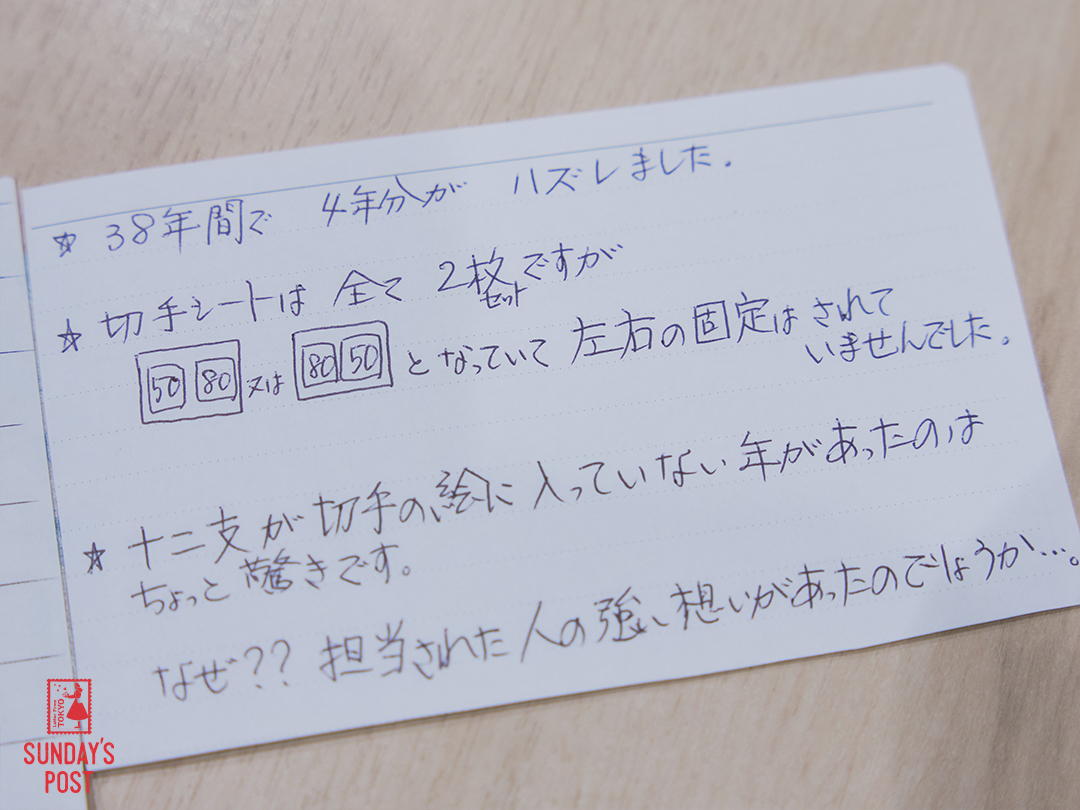 ☆ 38年間で 4年分が ハズレました。
☆ 切手シートは 全て 2枚ですが
セット
50 80 又は 80 50 となっていて 左右の固定は されて
いませんでした。
☆ 十二支が切手の絵に入っていない年があったのは
ちょっと驚きです。
なぜ?? 担当された人の強い想いがあったのでしょうか…。
Letter from TOKYO
SUNDAY'S
POST